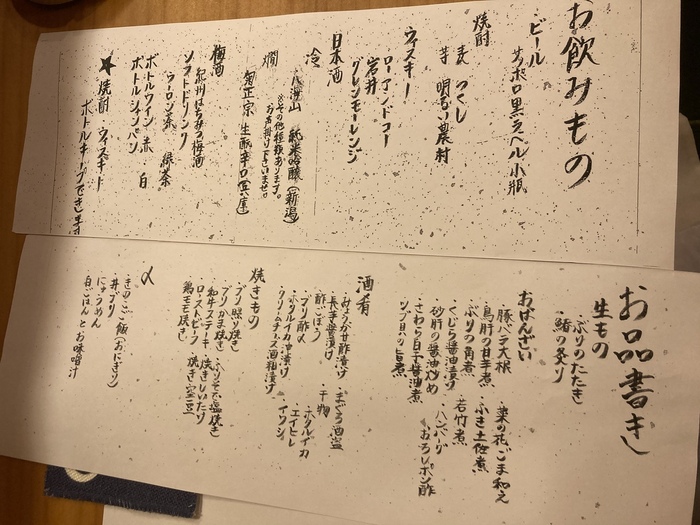 お飲みもの
ビール
サッポロ黒ラベル小瓶
焼酎
麦 つくし
芋 明るい農村
ウィスキー
ローアンドコー
岩井
グレンモーレンジ
日本酒
冷
八海山 純米吟醸(新潟)
※その他種類あります。
お声掛け下さいませ。
燗
菊正宗 生酛辛口(兵庫)
梅酒
紀州はちみつ梅酒
ソフトドリンク
ウーロン茶 緑茶
ボトルワイン 赤 白
ボトルシャンパン
★焼酎 ウィスキー
ボトルキープできます
お品書き
生もの
・ぶりのたたき
・鯖の炙り
おばんざい
・豚バラ大根 ・菜の花ごま和え
・鳥肝の甘辛煮 ・ふき土佐煮
・ぶりの角煮 ・若竹煮
・くじら醤油漬け ・ハンバーグ
・砂肝の醤油炒め おろしポン酢
・さわら白子醤油煮
・ツブ貝の旨煮
酒肴
・みょうが甘酢漬け ・まぐろ酒盗
・長芋醤漬け ・干物
・酢ごぼう ホタルイカ
・ブリ酢〆 エイヒレ
・ホタルイカ沖漬け イワシ
・クリームチーズ酒粕漬け
焼きもの
・ブリ照り焼き
・ブリかま焼き
・和牛ステーキ ・焼きしいたけ
・ローストビーフ ・焼き空豆
・鶏モモ焼き
〆
・きのこご飯(おにぎり)
・丼ぶり
・にゅうめん
・白ごはんとお味噌汁